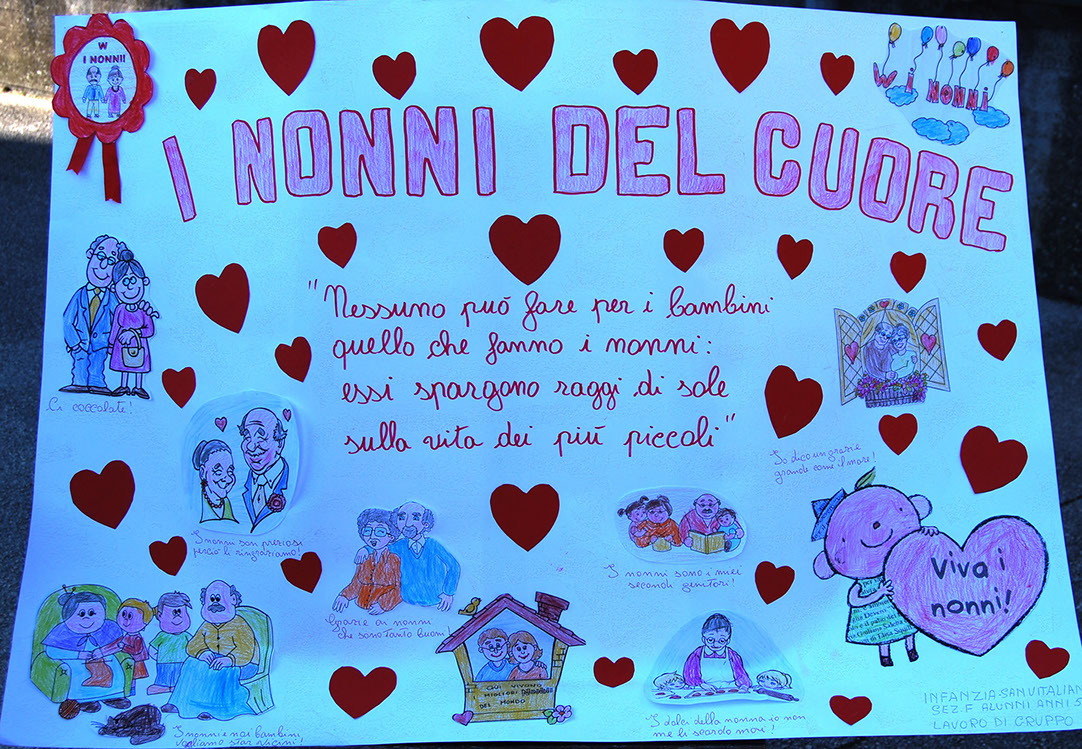 W
I NONNI!
W i NONNi
I NONNI DEL CUORE
"Nessuno può fare per i bambini
quello che fanno i nonni:
essi spargono raggi di sole
sulla vita dei più piccoli"
Ci coccolate!
Io dico un grazie
grande come il mare!
I nonni son preziosi
perciò li ringraziamo!
Grazie ai nonni
che sono tanto buoni!
I nonni sono i miei
secondi genitori!
Viva i
nonni!
QUI VIVONO
I MIGLIORI
DEL MONDO
I dolci della nonna io non
me li scordo mai!
I nonni e noi bambini
vogliamo star vicini!
INFANZIA SAN VITALIAN
SEZ. F ALUNNI ANNI 5
LAVORO DI GRUPPO